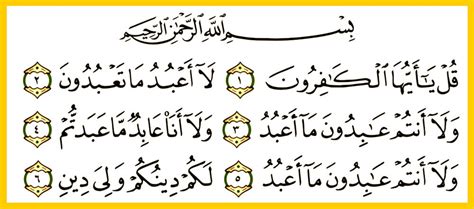 بِسْمِ اللَّهِ الرَّحْمَٰنِ الرَّحِيمِ
قُلْ يَٰٓأَيُّهَا ٱلْكَٰفِرُونَ ١ لَآ أَعْبُدُ مَا تَعْبُدُونَ ٢
وَلَآ أَنتُمْ عَٰبِدُونَ مَآ أَعْبُدُ ٣ وَلَآ أَنَا۠ عَابِدٌ مَّا عَبَدتُّمْ ٤
وَلَآ أَنتُمْ عَٰبِدُونَ مَآ أَعْبُدُ ٥ لَكُمْ دِينُكُمْ وَلِىَ دِينِ ٦